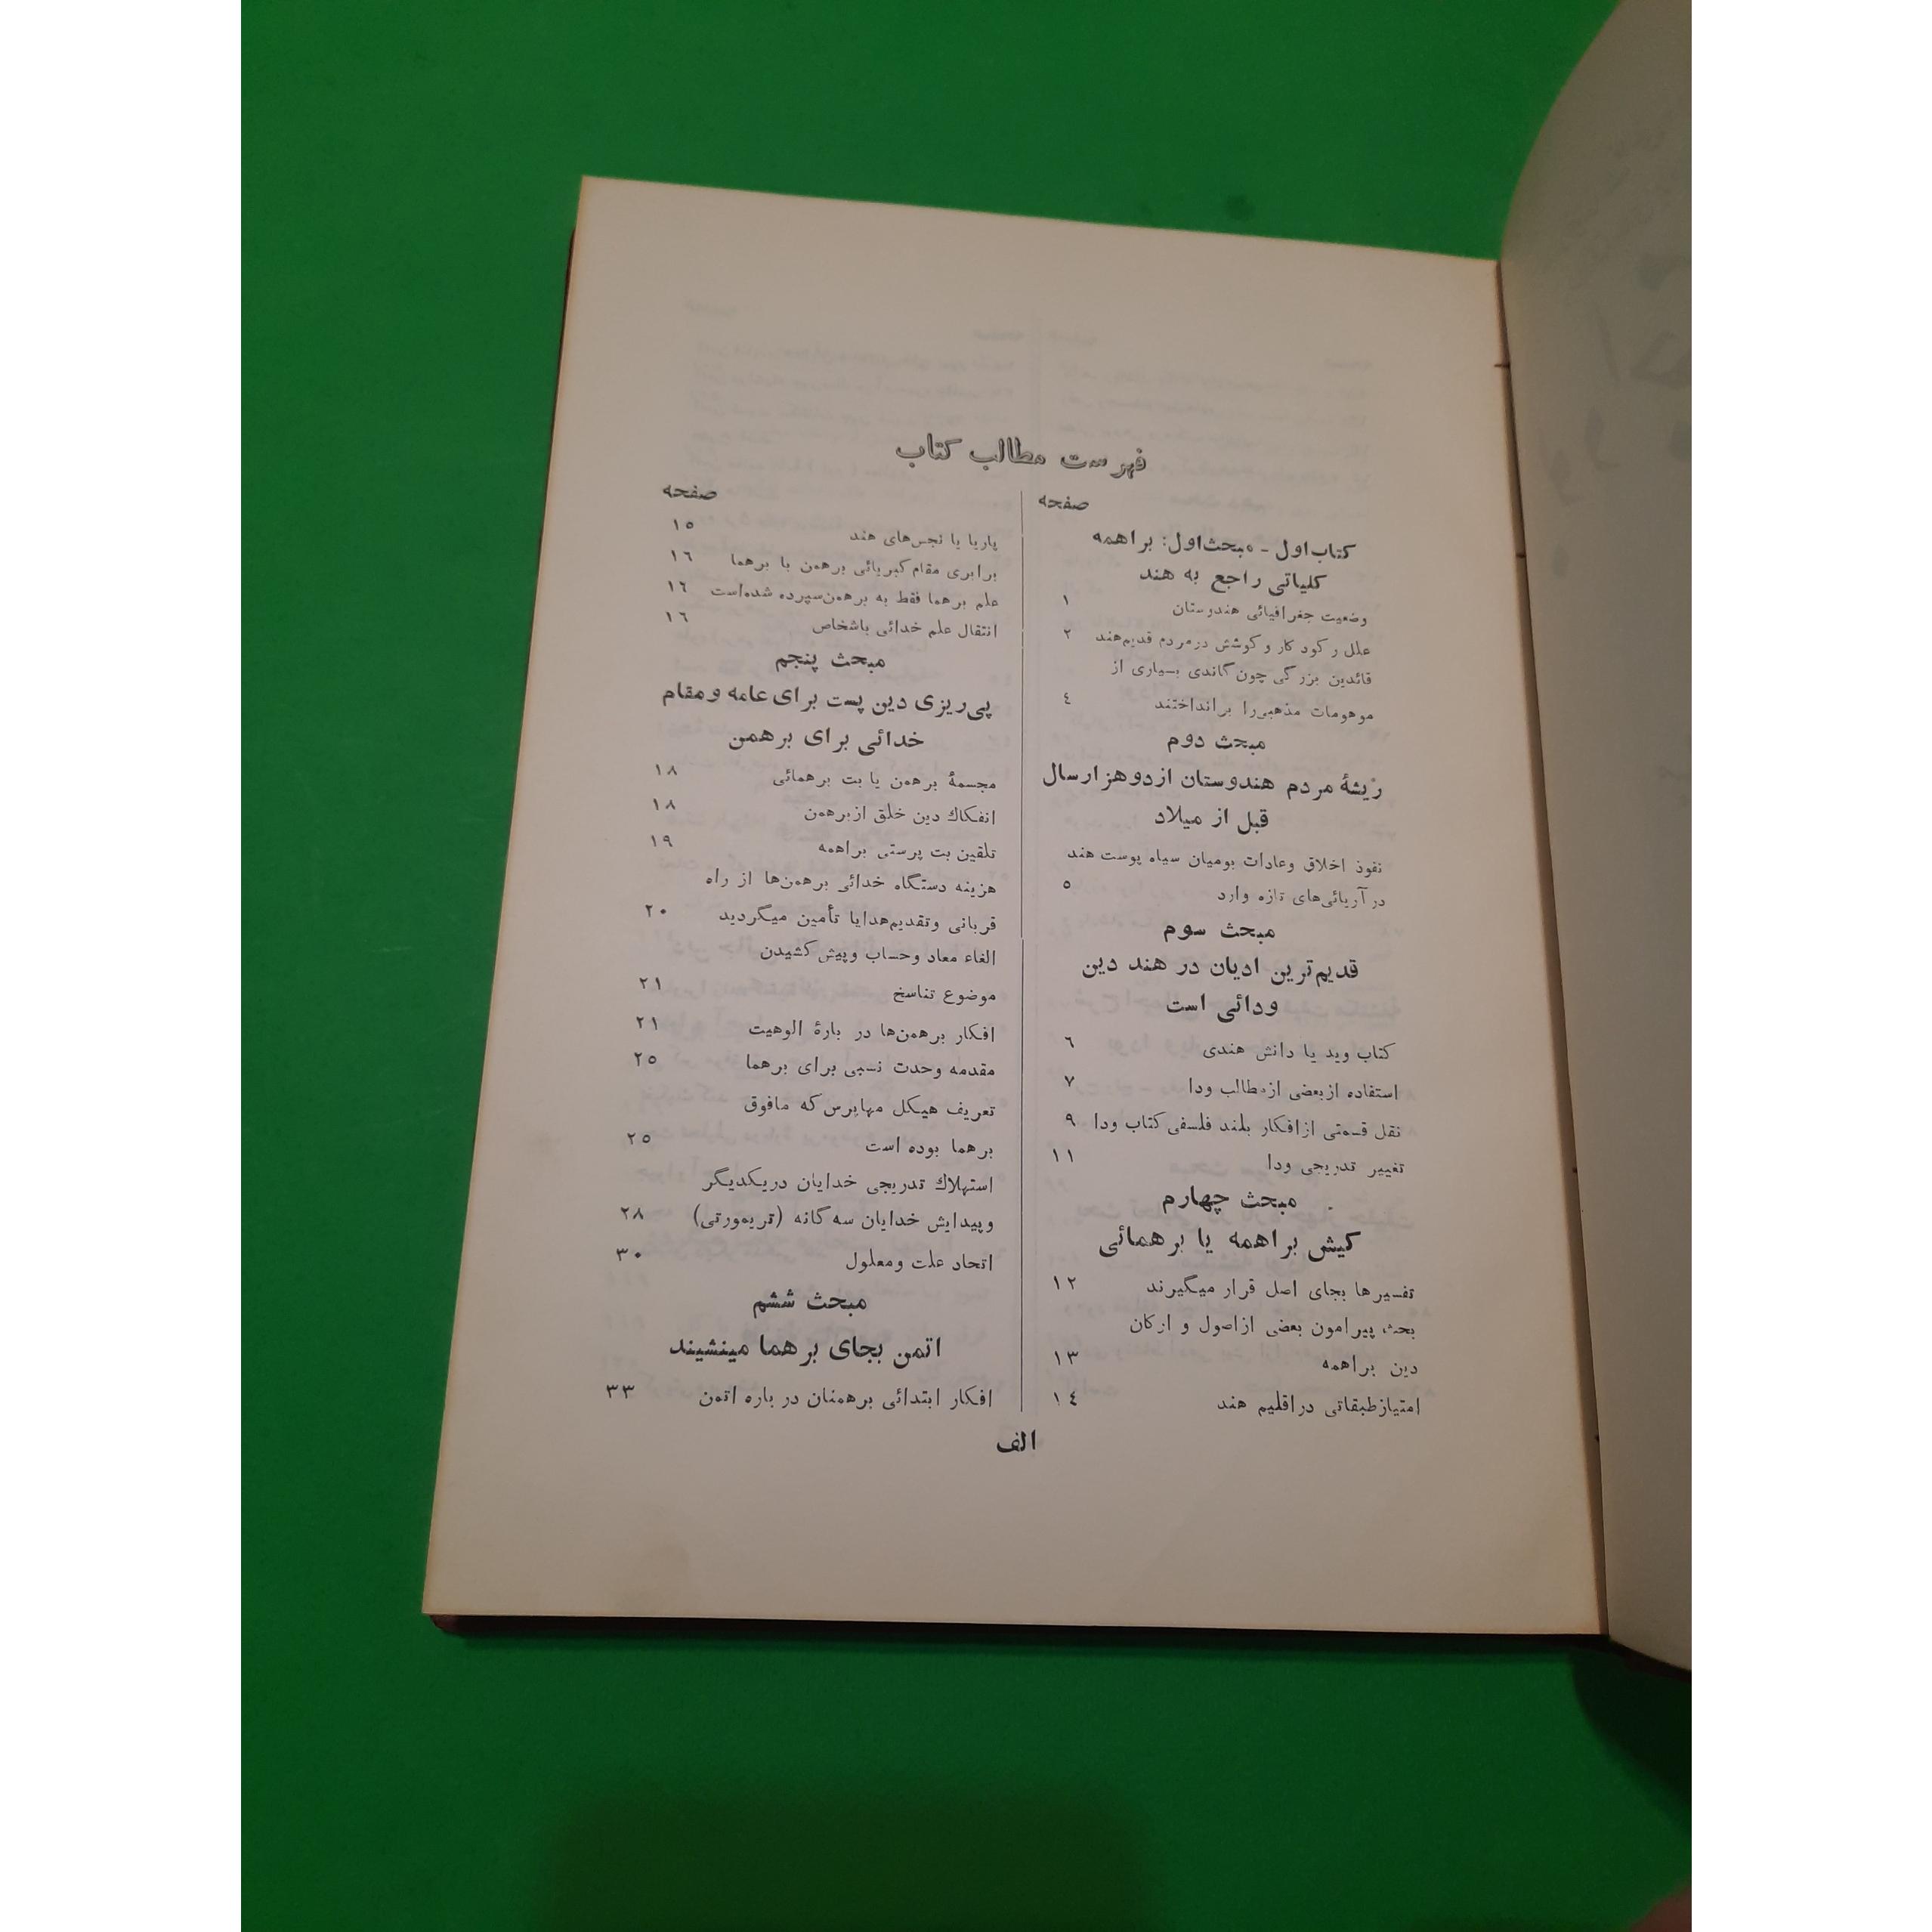 فهرست مطالب کتاب
صفحه
کتاب اول - مبحث اول: براهمه
کلیاتی راجع به هند
وضعیت جغرافیائی هندوستان ۱
علل رکود کار و کوشش در مردم قدیم هند ۲
قائدین بزرگی چون گاندی بسیاری از
موهومات مذهبی را برانداختند ٤
مبحث دوم
ریشهٔ مردم هندوستان از دو هزار سال
قبل از میلاد
نفوذ اخلاق وعادات بومیان سیاه پوست هند
در آریائی‌های تازه وارد ٥
مبحث سوم
قدیم‌ترین ادیان در هند دین
ودائی است
کتاب وید یا دانش هندی ٦
استفاده از بعضی از مطالب ودا ۷
نقل قسمتی از افکار بلند فلسفی کتاب ودا ۹
تغییر تدریجی ودا ۱۱
مبحث چهارم
کیش براهمه یا برهمائی
تفسیرها بجای اصل قرار میگیرند ۱۲
بحث پیرامون بعضی از اصول و ارکان
دین براهمه ۱۳
امتیاز طبقاتی در اقلیم هند ۱٤
صفحه
پاریا یا نجس‌های هند ۱٥
برابری مقام کبریائی برهمن با برهما ۱٦
علم برهما فقط به برهمن سپرده شده است ۱٦
انتقال علم خدائی باشخاص ۱٦
مبحث پنجم
پی‌ریزی دین پست برای عامه و مقام
خدائی برای برهمن
مجسمهٔ برهمن یا بت برهمائی ۱۸
انفکاك دین خلق از برهمن ۱۸
تلقین بت پرستی براهمه ۱۹
هزینه دستگاه خدائی برهمن‌ها از راه
قربانی وتقدیم هدایا تأمین میگردید ۲۰
الغاء معاد وحساب وپیش کشیدن
موضوع تناسخ ۲۱
افکار برهمن‌ها در بارهٔ الوهیت ۲۱
مقدمه وحدت نسبی برای برهما ۲٥
تعریف هیکل مهاپرس که مافوق
برهما بوده است ۲٥
استهلاك تدریجی خدایان در یکدیگر
وپیدایش خدایان سه گانه (تریمورتی) ۲۸
اتحاد علت ومعلول ۳۰
مبحث ششم
اتمن بجای برهما مینشیند
افکار ابتدائی برهمنان در باره اتمن ۳۳
الف